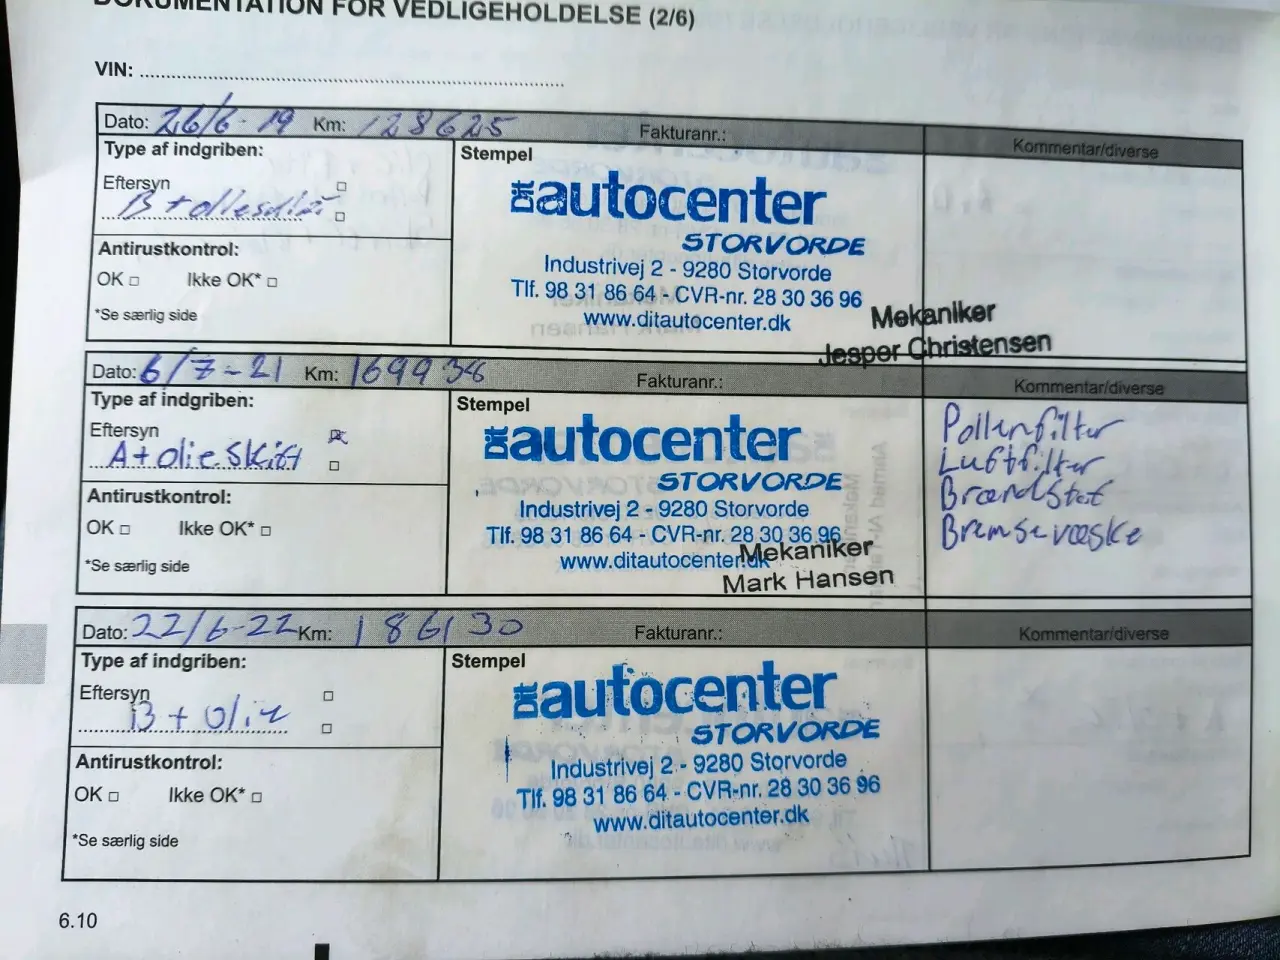 DOKUMENTATION FOR VEDLIGEHOLDELSE (2/6)
VIN:
Dato: 26/6-19 Km: 128625 Fakturanr.: Kommentar/diverse
Type af indgriben:
Stempel
Eftersyn
B + olieskift
Antirustkontrol:
OK Ikke OK*
*Se særlig side
Dit autocenter
STORVORDE
Industrivej 2 - 9280 Storvorde
Tlf. 98 31 86 64 - CVR-nr. 28 30 36 96
www.ditautocenter.dk
Mekaniker
Jesper Christensen
Dato: 6/7-21 Km: 169938 Fakturanr.: Kommentar/diverse
Type af indgriben:
Stempel
Eftersyn
A + olie skift
Antirustkontrol:
OK Ikke OK*
*Se særlig side
Dit autocenter
STORVORDE
Industrivej 2 - 9280 Storvorde
Tlf. 98 31 86 64 - CVR-nr. 28 30 36 96
www.ditautocenter.dk
Mekaniker
Mark Hansen
Pollenfilter
Luftfilter
Brændstof
Bremsevæske
Dato: 22/6-22 Km: 186130 Fakturanr.: Kommentar/diverse
Type af indgriben:
Stempel
Eftersyn
B + olie
Antirustkontrol:
OK Ikke OK*
*Se særlig side
Dit autocenter
STORVORDE
Industrivej 2 - 9280 Storvorde
Tlf. 98 31 86 64 - CVR-nr. 28 30 36 96
www.ditautocenter.dk
6.10